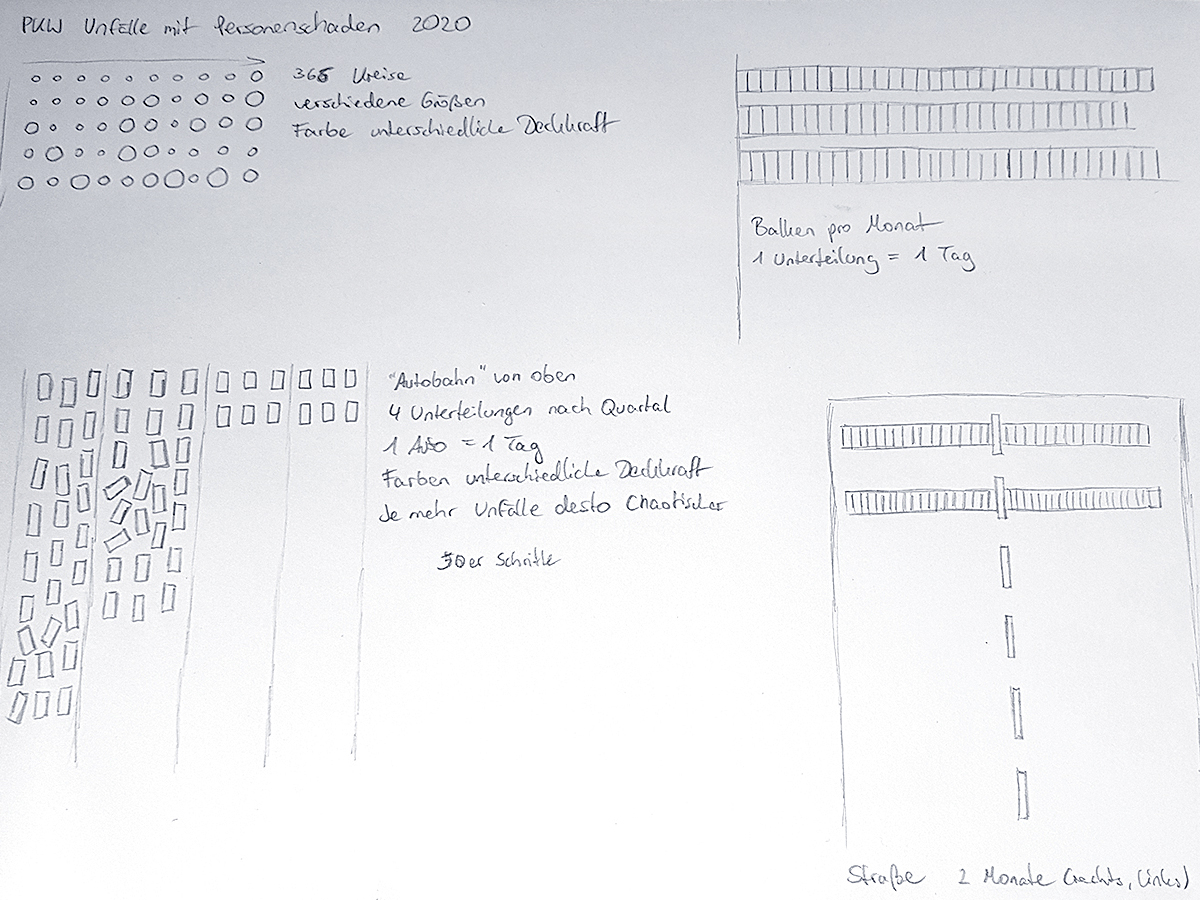 PKW Unfälle mit Personenschaden 2020
365 Kreise
verschiedene Größen
Farbe unterschiedliche Deckkraft
Balken pro Monat
1 Unterteilung = 1 Tag
"Autobahn" von oben
4 Unterteilungen nach Quartal
1 Auto = 1 Tag
Farben unterschiedliche Deckkraft
Je mehr Unfälle desto Chaotischer
50er Schritte
Straße 2 Monate (rechts, links)